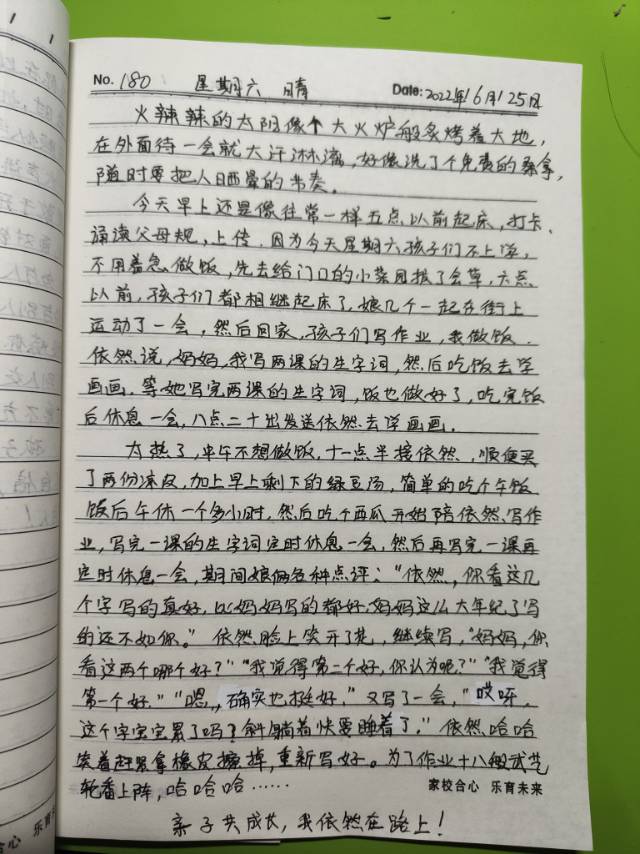 No. 180 星期六 晴 Date: 2022年6月25日
火辣辣的太阳像个大火炉般炙烤着大地,
在外面待一会就大汗淋漓,好像洗了个免费的桑拿,
随时要把人晒晕的节奏。
今天早上还是像往常一样五点以前起床,打卡、
诵读父母规,上传。因为今天星期六孩子们不上学,
不用着急做饭,先去给门口的小菜园拔了会草,六点
以前,孩子们都相继起床了,娘几个一起在街上
运动了一会,然后回家,孩子们写作业,我做饭。
依然说,妈妈,我写两课的生字词,然后吃饭去学
画画。等她写完两课的生字词,饭也做好了,吃完饭
后休息一会,八点二十出发送依然去学画画。
太热了,中午不想做饭,十一点半接依然,顺便买
了两份凉皮,加上早上剩下的绿豆汤,简单的吃个午饭
饭后午休一个多小时,然后吃个西瓜开始陪依然写作
业,写完一课的生字词定时休息一会,然后再写完一课再
定时休息一会,期间娘俩各种点评:“依然,你看这几
个字写的真好,比妈妈写的都好,妈妈这么大年纪了写
的还不如你。”依然脸上笑开了花,继续写,“妈妈,你
看这两个哪个好?”“我觉得第二个好,你认为呢?”“我觉得
第一个好。”“嗯,,确实也挺好。”又写了一会,“哎呀,
这个字宝宝累了吗?斜躺着快要睡着了。”依然哈哈
笑着赶紧拿橡皮擦掉,重新写好。为了作业十八般武艺
轮番上阵,哈哈哈……
家校合心 乐育未来
亲子共成长,我依然在路上!
合心 乐育